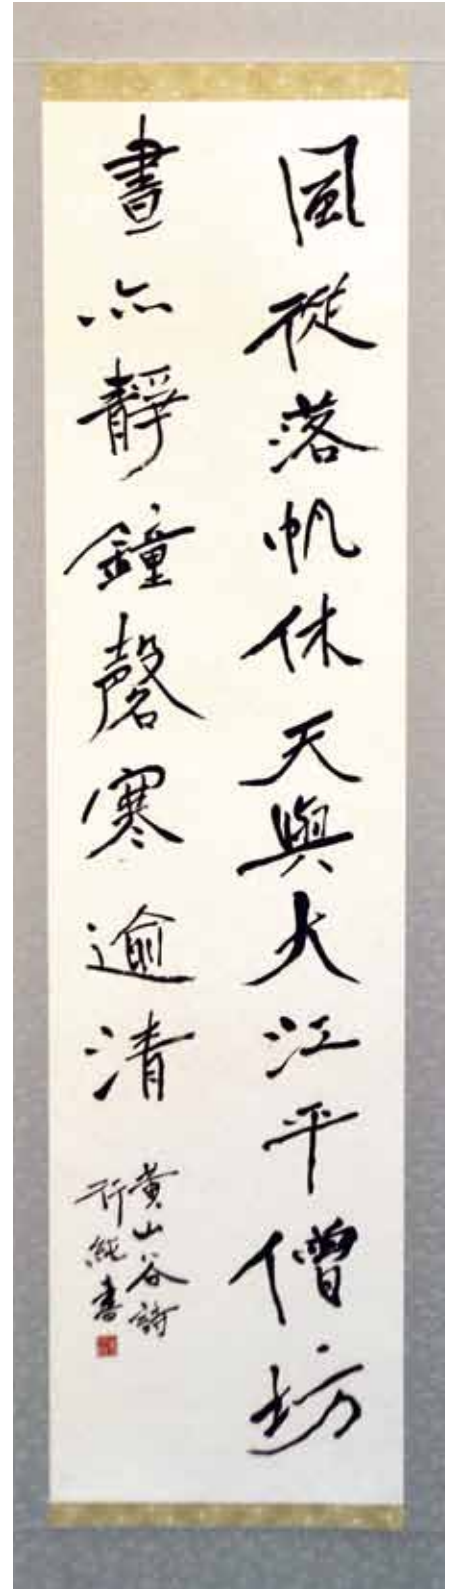 風從落帆休天與大江平僧坊
晝亦靜鐘磬寒逾清
黄山谷詩
行純書